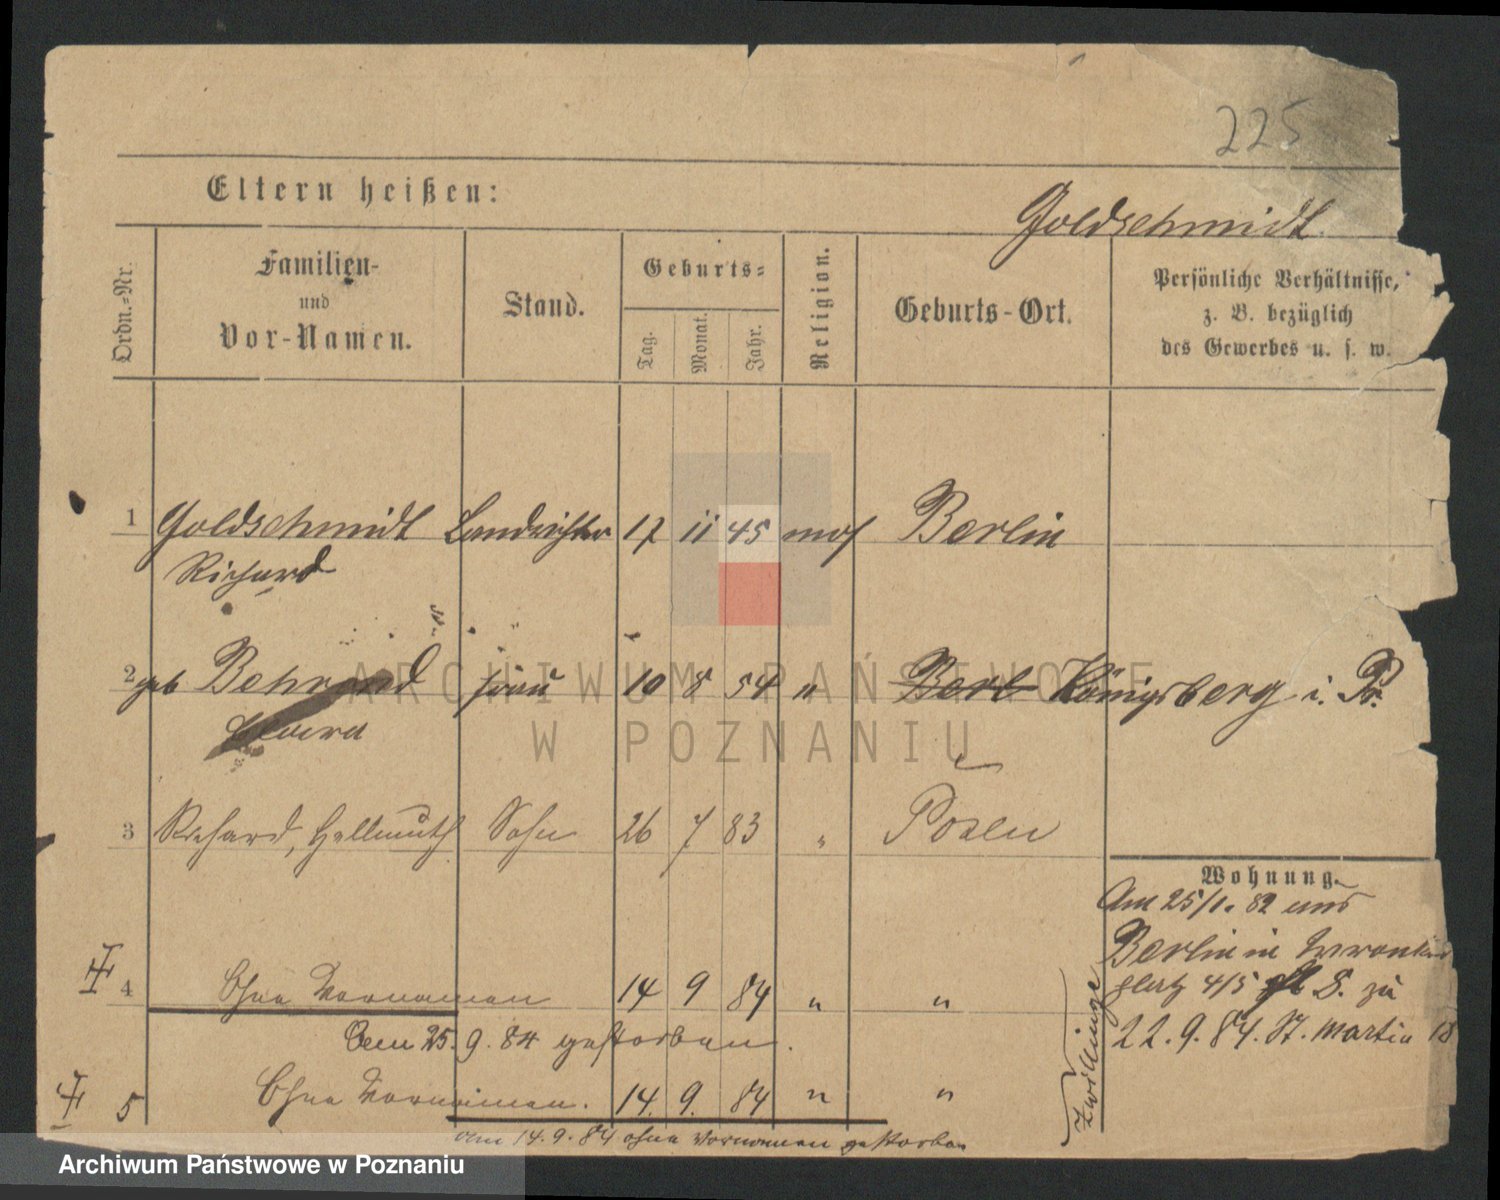 225
Eltern heißen:
Goldschmidt
Ordn.-Nr.
Familien-
und
Vor-Namen.
Stand.
Geburts-
Tag.
Monat.
Jahr.
Religion.
Geburts-Ort.
Persönliche Verhältnisse,
z. B. bezüglich
des Gewerbes u. s. w.
1 Goldschmidt Landrichter 17 11 45 mos Berlin
Richard
2 geb Behrend Frau 10 8 54 " Berl Königsberg i. Pr.
Clara
3 Richard, Hellmuth Sohn 26 7 83 " Posen
Wohnung.
Am 25/1. 82 uns
Berlin in Wronker
platz 4/5 S. zu
22. 9. 84. St. Martin 18
4 Ohne Vornamen 14 9 84 " "
Am 25. 9. 84 gestorben.
5 Ohne Vornamen. 14. 9. 84 " "
am 14. 9. 84 ohne Vornamen gestorben
Zwillinge
ARCHIWUM PAŃSTWOWE
W POZNANIU
Archiwum Państwowe w Poznaniu